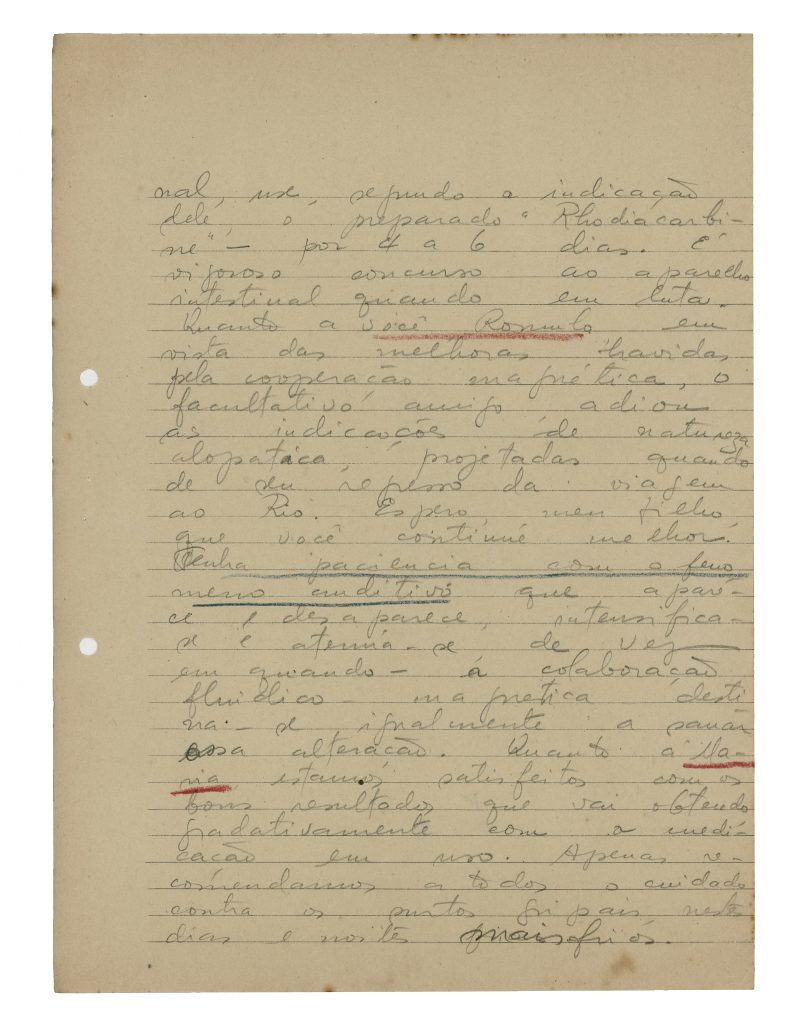 nal, use, segundo a indicação
dele, o preparado "Rhodiacarbi-
ne" - por 4 a 6 dias. É
vigoroso concurso ao aparelho
intestinal quando em luta.
Quanto a você Romulo em
vista das melhoras havidas
pela cooperação magnética, o
facultativo amigo adiou
as indicações de natureza
alopatica, projetadas quando
de seu regresso da viagem
ao Rio. Espero, meu filho,
que você continue melhor.
Tenha paciencia com o feno
meno auditivo que apare-
ce e desaparece, intensifica-
se e atenua-se de vez
em quando - a colaboração
fluidico - magnetica desti
na-se igualmente a sanar
essa alteração. Quanto á Ma-
ria estamos satisfeitos com os
bons resultados que vai obtendo
gradativamente com a medi-
cação em uso. Apenas re-
comendamos a todos o cuidado
contra os surtos gripais nestes
dias e noites mais frios.